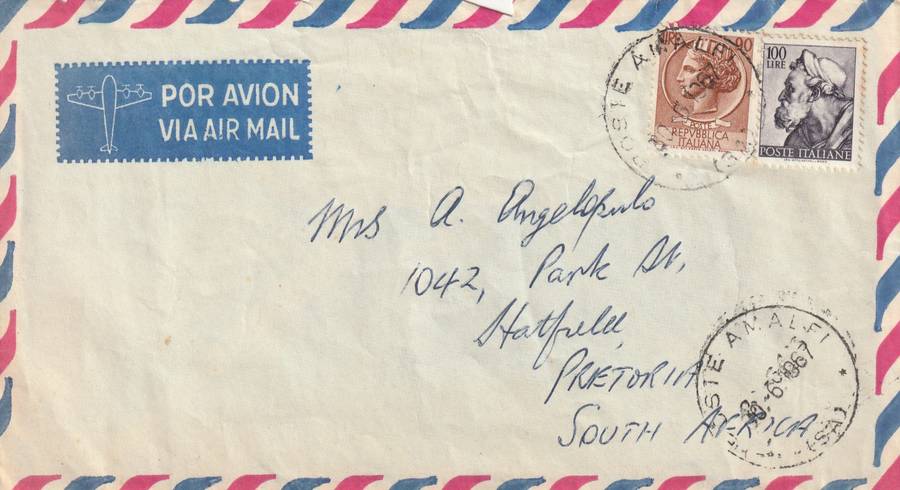 POR AVION
VIA AIR MAIL
90
100
LIRE
POSTE
REPVBBLICA
ITALIANA
POSTE ITALIANE
POSTE AMALFI
Mrs A. Angelopulo
1042, Park St,
Hatfield,
PRETORIA
SOUTH AFRICA
POSTE AMALFI
1967